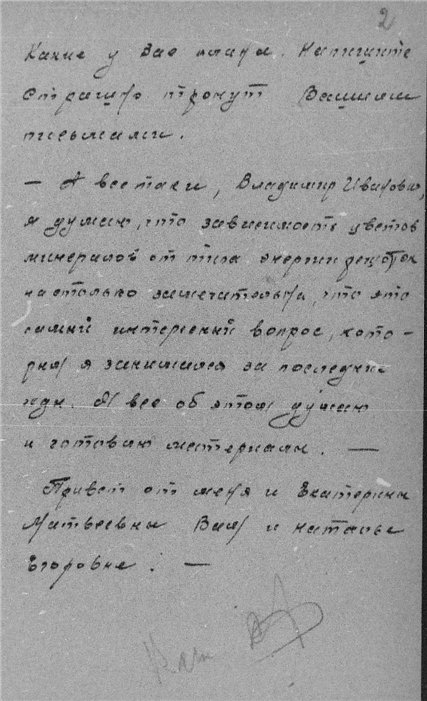 2
Какие у Вас планы. Напишите
Страшно тронут Вашими
письмами.
— А все таки, Владимир Иванович,
я думаю, что зависимость цветов
минералов от типа энергии решоток
настолько замечательна, что это
самый интересный вопрос, кото-
рым я занимался за последние
годы. Я все об этом думаю
и готовлю материалы. —
Привет от меня и Екатерины
Матвеевны Вам и Наталье
Егоровне. —
Ваш